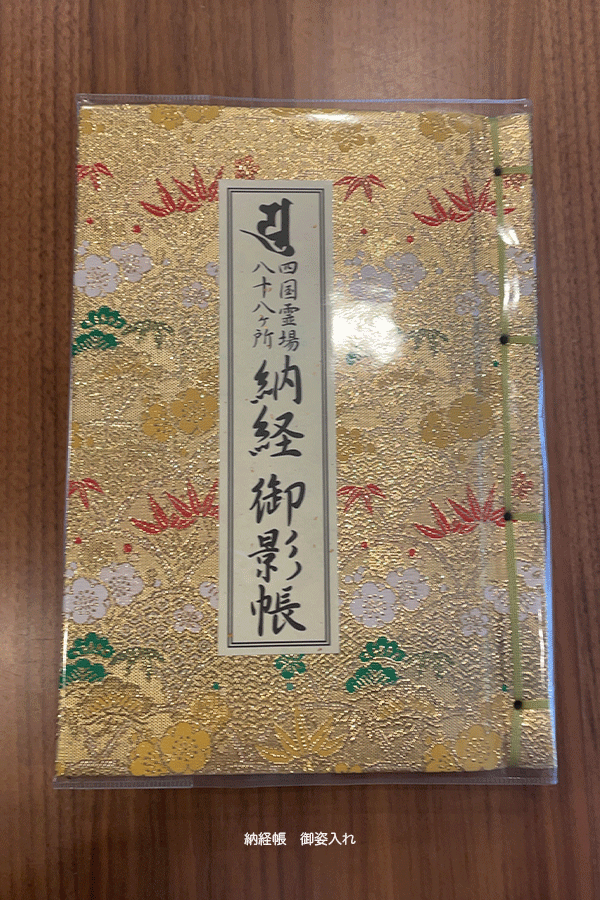 四国霊場
八十八ヶ所
納経御影帳
納経帳　御姿入れ